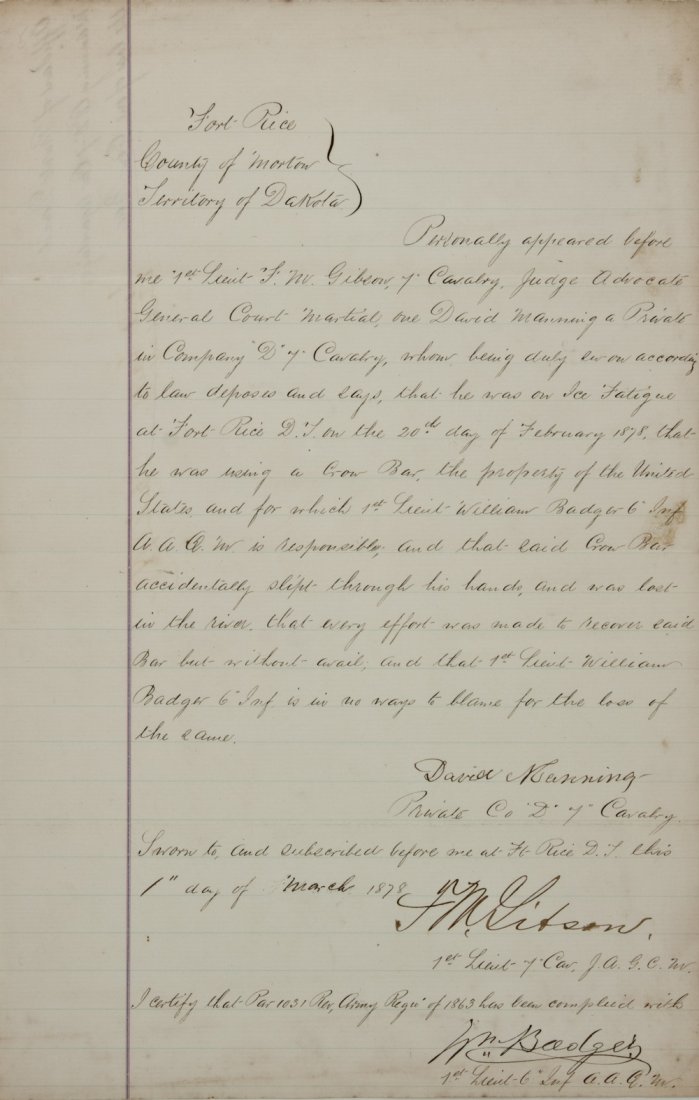 Fort Rice
County of Morton
Territory of Dakota
Personally appeared before
me 1st Lieut F. M. Gibson, 7" Cavalry, Judge Advocate
General Court Martial, one David Manning a Private
in Company "D" 7" Cavalry, whom, being duly sworn according
to law deposes and says, that he was on Ice Fatigue
at Fort Rice D.T. on the 20th day of February 1878, that
he was using a Crow Bar, the property of the United
States and for which 1st Lieut William Badger 6" Inf
A. A. Q. M. is responsible, and that said Crow Bar
accidentally slipt through his hands, and was lost
in the river, that every effort was made to recover said
Bar but without avail; and that 1st Lieut William
Badger 6" Inf. is in no ways to blame for the loss of
the same.
David Manning
Private Co "D" 7" Cavalry.
Sworn to, and subscribed before me at Ft. Rice D.T. this
1" day of March 1878
F. M. Gibson.
1st Lieut 7" Cav. J. A. G. C. M.
I certify that Par 1031 Rev, Army Regs" of 1863 has been complied with
Wm Badger
1st Lieut 6" Inf A. A. Q. M.